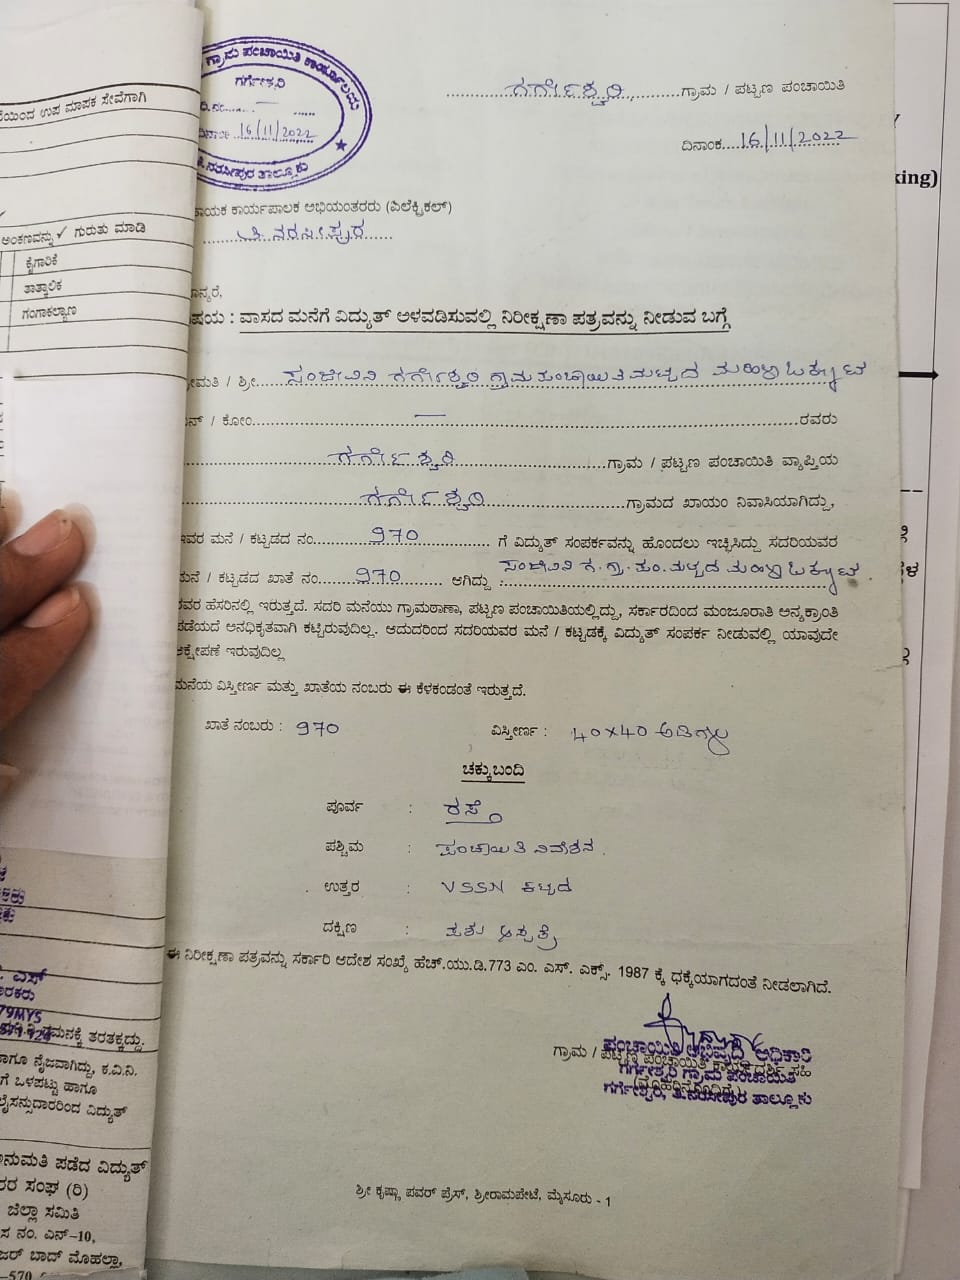 ಗ್ರಾಮ ಪಂಚಾಯಿತಿ ಕಾರ್ಯಾಲಯ
ಗರ್ಗೇಶ್ವರಿ
ದಿನಾಂಕ 16/11/2022
ತಿ.ನರಸೀಪುರ ತಾಲ್ಲೂಕು
ಗರ್ಗೇಶ್ವರಿ ಗ್ರಾಮ / ಪಟ್ಟಣ ಪಂಚಾಯಿತಿ
ದಿನಾಂಕ 16/11/2022
ಕಾರ್ಯಪಾಲಕ ಅಭಿಯಂತರರು (ಎಲೆಕ್ಟ್ರಿಕಲ್)
ತಿ.ನರಸೀಪುರ
ವಾಸದ ಮನೆಗೆ ವಿದ್ಯುತ್ ಅಳವಡಿಸುವಲ್ಲಿ ನಿರೀಕ್ಷಣಾ ಪತ್ರವನ್ನು ನೀಡುವ ಬಗ್ಗೆ
/ ಶ್ರೀ ಸಂಜೀವಿನಿ ಗರ್ಗೇಶ್ವರಿ ಗ್ರಾಮ ಪಂಚಾಯಿತಿ ಮಟ್ಟದ ಮಹಿಳಾ ಒಕ್ಕೂಟ
/ ಕೋಂ — ರವರು
ಗರ್ಗೇಶ್ವರಿ ಗ್ರಾಮ / ಪಟ್ಟಣ ಪಂಚಾಯಿತಿ ವ್ಯಾಪ್ತಿಯ
ಗರ್ಗೇಶ್ವರಿ ಗ್ರಾಮದ ಖಾಯಂ ನಿವಾಸಿಯಾಗಿದ್ದು,
ಇವರ ಮನೆ / ಕಟ್ಟಡದ ನಂ. 970 ಗೆ ವಿದ್ಯುತ್ ಸಂಪರ್ಕವನ್ನು ಹೊಂದಲು ಇಚ್ಛಿಸಿದ್ದು ಸದರಿಯವರ
ಮನೆ / ಕಟ್ಟಡದ ಖಾತೆ ನಂ. 970 ಆಗಿದ್ದು ಸಂಜೀವಿನಿ ಗ.ಗ್ರಾ.ಪಂ.ಮಟ್ಟದ ಮಹಿಳಾ ಒಕ್ಕೂಟ
ರವರ ಹೆಸರಿನಲ್ಲಿ ಇರುತ್ತದೆ. ಸದರಿ ಮನೆಯು ಗ್ರಾಮಠಾಣಾ, ಪಟ್ಟಣ ಪಂಚಾಯಿತಿಯಲ್ಲಿದ್ದು, ಸರ್ಕಾರದಿಂದ ಮಂಜೂರಾತಿ ಅನ್ಯಕ್ರಾಂತಿ
ಪಡೆಯದೆ ಅನಧಿಕೃತವಾಗಿ ಕಟ್ಟಿರುವುದಿಲ್ಲ. ಆದುದರಿಂದ ಸದರಿಯವರ ಮನೆ / ಕಟ್ಟಡಕ್ಕೆ ವಿದ್ಯುತ್ ಸಂಪರ್ಕ ನೀಡುವಲ್ಲಿ ಯಾವುದೇ
ಆಕ್ಷೇಪಣೆ ಇರುವುದಿಲ್ಲ
ಮನೆಯ ವಿಸ್ತೀರ್ಣ ಮತ್ತು ಖಾತೆಯ ನಂಬರು ಈ ಕೆಳಕಂಡಂತೆ ಇರುತ್ತದೆ.
ಖಾತೆ ನಂಬರು : 970 ವಿಸ್ತೀರ್ಣ : 40x40 ಅಡಿಗಳು
ಚಕ್ಕುಬಂದಿ
ಪೂರ್ವ : ರಸ್ತೆ
ಪಶ್ಚಿಮ : ಪಂಚಾಯಿತಿ ನಿವೇಶನ.
ಉತ್ತರ : VSSN ಕಟ್ಟಡ
ದಕ್ಷಿಣ : ಪಶು ಆಸ್ಪತ್ರೆ
ಈ ನಿರೀಕ್ಷಣಾ ಪತ್ರವನ್ನು ಸರ್ಕಾರಿ ಆದೇಶ ಸಂಖ್ಯೆ ಹೆಚ್.ಯು.ಡಿ.773 ಎಂ. ಎಸ್. ಎಕ್ಸ್. 1987 ಕ್ಕೆ ಧಕ್ಕೆಯಾಗದಂತೆ ನೀಡಲಾಗಿದೆ.
ಪಂಚಾಯಿತಿ ಅಭಿವೃದ್ಧಿ ಅಧಿಕಾರಿ
ಗ್ರಾಮ / ಪಟ್ಟಣ ಪಂಚಾಯಿತಿ ಕಾರ್ಯದರ್ಶಿ ಸಹಿ
ಗರ್ಗೇಶ್ವರಿ ಗ್ರಾಮ ಪಂಚಾಯಿತಿ
ಗರ್ಗೇಶ್ವರಿ, ತಿ.ನರಸೀಪುರ ತಾಲ್ಲೂಕು
ಶ್ರೀ ಕೃಷ್ಣಾ ಪವರ್ ಪ್ರೆಸ್, ಶ್ರೀರಾಮಪೇಟೆ, ಮೈಸೂರು - 1
ಉಪ ಮಾಪಕ ಸೇವೆಗಾಗಿ
ಅಂಕಣವನ್ನು ✓ ಗುರುತು ಮಾಡಿ
ಕೈಗಾರಿಕೆ
ತಾತ್ಕಾಲಿಕ
ಗಂಗಾಕಲ್ಯಾಣ
ಗಮನಕ್ಕೆ ತರತಕ್ಕದ್ದು.
ಹಾಗೂ ನೈಜವಾಗಿದ್ದು, ಕ.ವಿ.ನಿ.
ಗೆ ಒಳಪಟ್ಟು ಹಾಗೂ
ಲೈಸನ್ಸುದಾರರಿಂದ ವಿದ್ಯುತ್
ಅನುಮತಿ ಪಡೆದ ವಿದ್ಯುತ್
ಸಂಘ (ರಿ)
ಜಿಲ್ಲಾ ಸಮಿತಿ
ನಂ. ಎನ್-10,
ಬಾದ್ ಮೊಹಲ್ಲಾ,
king)